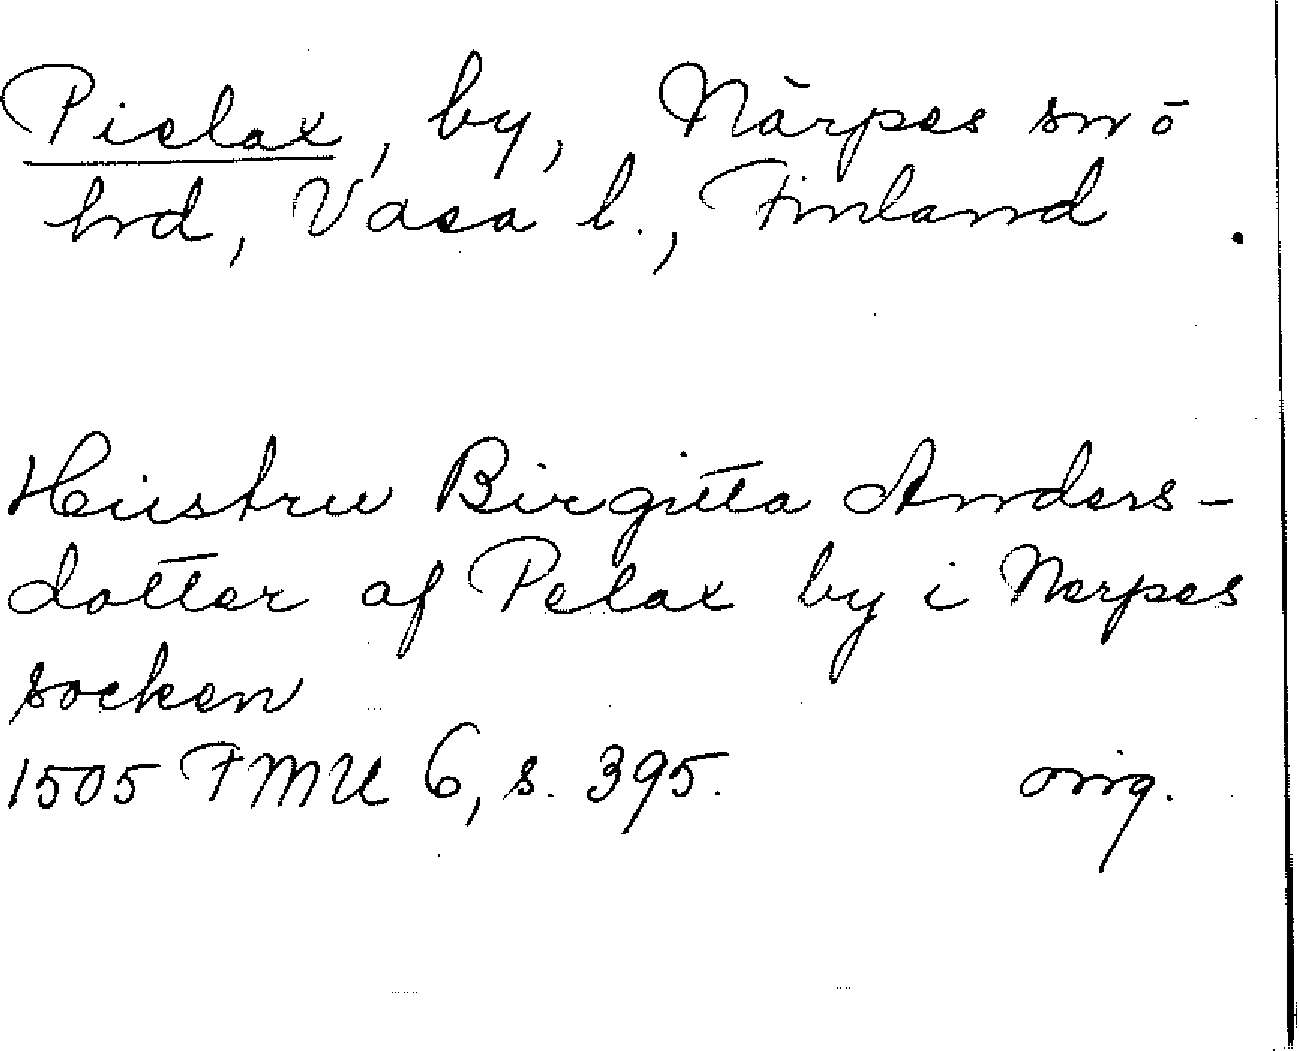 Pielax, by, Närpes sn o
hrd, Vasa l., Finland
Hustru Birgitta Anders-
dotter af Pelax by i Nerpes
socken
1505 FMU 6, s. 395. orig.